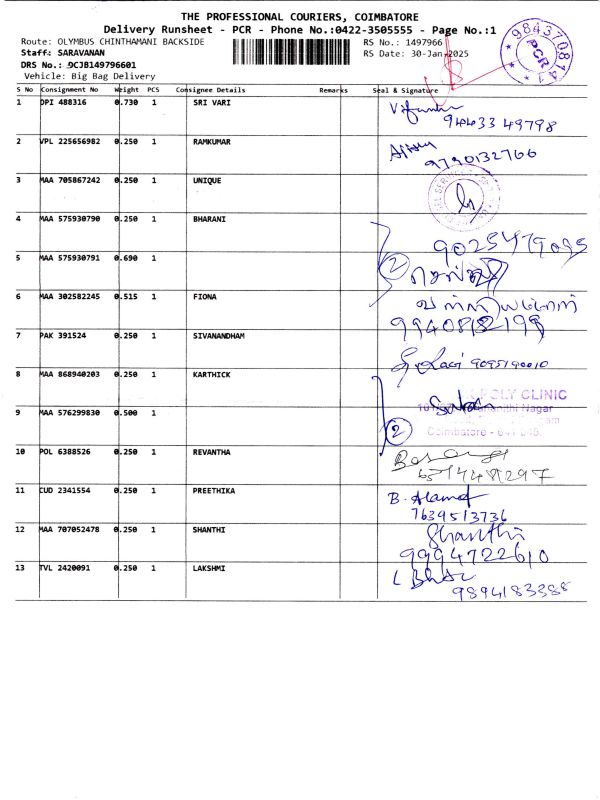 THE PROFESSIONAL COURIERS, COIMBATORE
Delivery Runsheet - PCR - Phone No.:0422-3505555 - Page No.:1
Route: OLYMBUS CHINTHAMANI BACKSIDE RS No.: 1497966
Staff: SARAVANAN RS Date: 30-Jan-2025
DRS No.: 9CJB149796601
Vehicle: Big Bag Delivery
9843708141
PCR
S No Consignment No Weight PCS Consignee Details Remarks Seal & Signature
1 DPI 488316 0.730 1 SRI VARI
94433 49798
2 VPL 225656982 0.250 1 RAMKUMAR
9790132766
3 MAA 705867242 0.250 1 UNIQUE
4 MAA 575930790 0.250 1 BHARANI
5 MAA 575930791 0.690 1
2
6 MAA 302582245 0.515 1 FIONA
7 PAK 391524 0.250 1 SIVANANDHAM
9095190010
8 MAA 868940203 0.250 1 KARTHICK
CLINIC
Nagar
9 MAA 576299830 0.500 1
2
Coimbatore - 641 045.
10 POL 6388526 0.250 1 REVANTHA
11 CUD 2341554 0.250 1 PREETHIKA
B.
7639513736
12 MAA 707052478 0.250 1 SHANTHI Shanthi
9994722610
13 TVL 2420091 0.250 1 LAKSHMI
9894183388